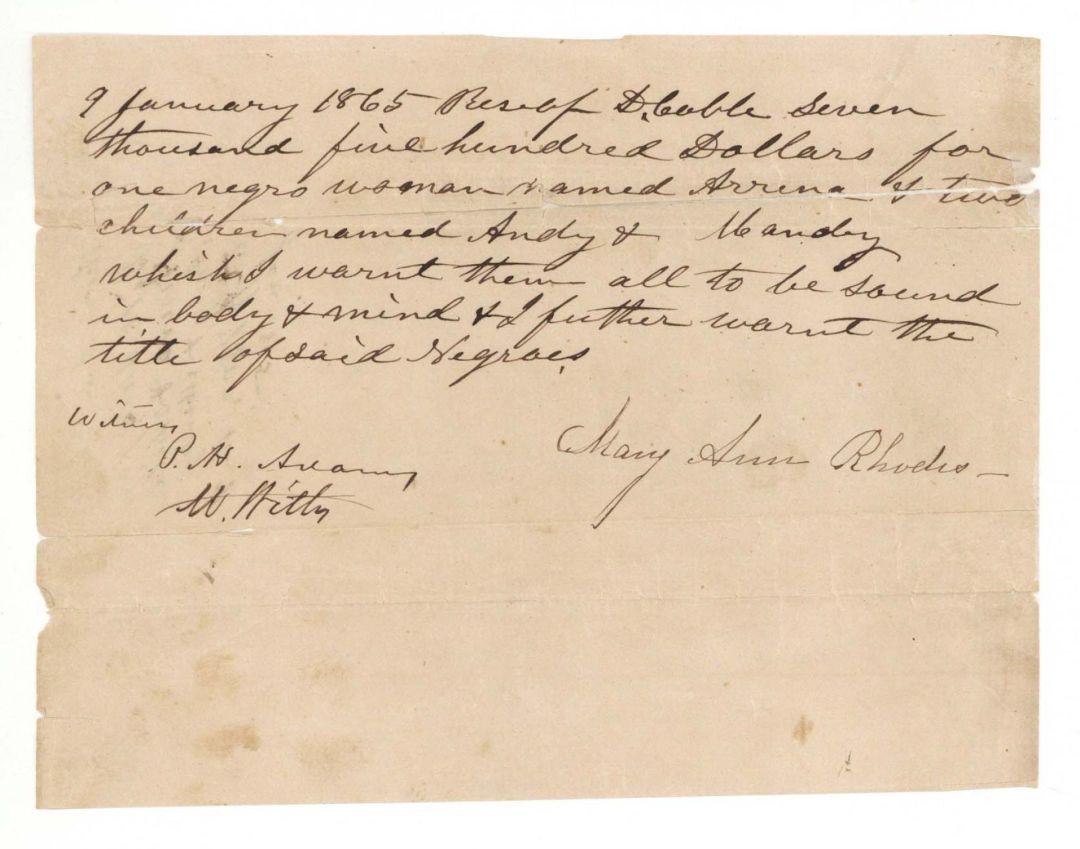 9 January 1865 Rec of D. Coble seven
thousand five hundred Dollars for
one negro woman named Arrena & two
children named Andy & Mandy
which I warnt them all to be sound
in body & mind & I futher warnt the
title of said Negroes.
Witness
P. H.
Mary Ann Rhodes
M. Witty